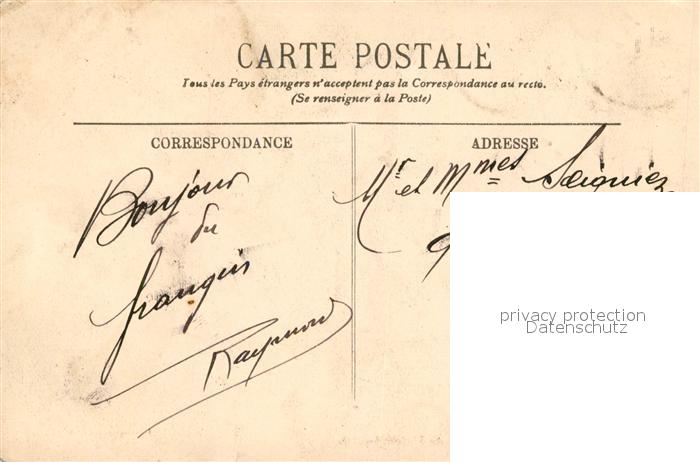 CARTE POSTALE
Tous les Pays étrangers n'acceptent pas la Correspondance au recto.
(Se renseigner à la Poste)
CORRESPONDANCE
ADRESSE
Bonjour
du
frangin
Raymond
Mr et Mmes
privacy protection
Datenschutz